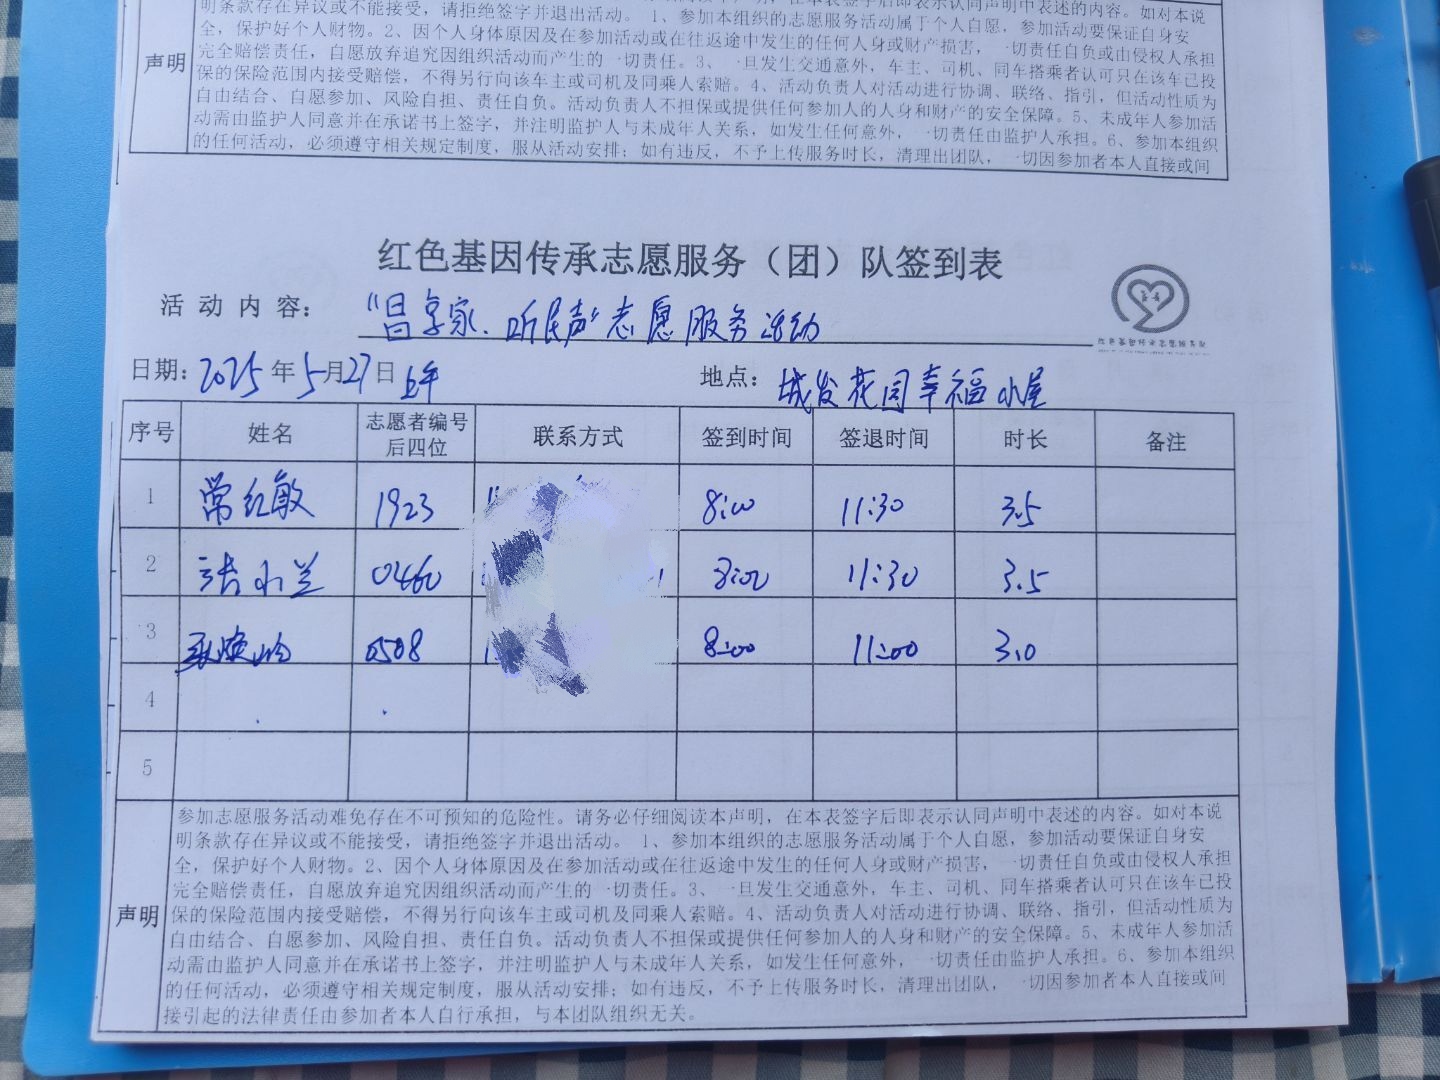 明条款存在异议或不能接受，请拒绝签字并退出活动。 1、参加本组织的志愿服务活动属于个人自愿，参加活动要保证自身安
全，保护好个人财物。2、因个人身体原因及在参加活动或在往返途中发生的任何人身或财产损害，一切责任自负或由侵权人承担
完全赔偿责任，自愿放弃追究因组织活动而产生的一切责任。3、一旦发生交通意外，车主、司机、同车搭乘者认可只在该车已投
声明
保的保险范围内接受赔偿，不得另行向该车主或司机及同乘人索赔。4、活动负责人对活动进行协调、联络、指引，但活动性质为
自由结合、自愿参加、风险自担、责任自负。活动负责人不担保或提供任何参加人的人身和财产的安全保障。5、未成年人参加活
动需由监护人同意并在承诺书上签字，并注明监护人与未成年人关系，如发生任何意外，一切责任由监护人承担。6、参加本组织
的任何活动，必须遵守相关规定制度，服从活动安排；如有违反，不予上传服务时长，清理出团队，一切因参加者本人直接或间
红色基因传承志愿服务（团）队签到表
活动内容： “昌 家、听民声”志愿服务活动
日期：2025年5月27日上午 地点：城发花园幸福小屋
序号 姓名 志愿者编号后四位 联系方式 签到时间 签退时间 时长 备注
1 常红敏 1923 8:00 11:30 3.5
2 小兰 0460 8:00 11:30 3.5
3 0508 8:00 11:00 3.0
4
5
参加志愿服务活动难免存在不可预知的危险性。请务必仔细阅读本声明，在本表签字后即表示认同声明中表述的内容。如对本说
明条款存在异议或不能接受，请拒绝签字并退出活动。 1、参加本组织的志愿服务活动属于个人自愿，参加活动要保证自身安
全，保护好个人财物。2、因个人身体原因及在参加活动或在往返途中发生的任何人身或财产损害，一切责任自负或由侵权人承担
完全赔偿责任，自愿放弃追究因组织活动而产生的一切责任。3、一旦发生交通意外，车主、司机、同车搭乘者认可只在该车已投
声明
保的保险范围内接受赔偿，不得另行向该车主或司机及同乘人索赔。4、活动负责人对活动进行协调、联络、指引，但活动性质为
自由结合、自愿参加、风险自担、责任自负。活动负责人不担保或提供任何参加人的人身和财产的安全保障。5、未成年人参加活
动需由监护人同意并在承诺书上签字，并注明监护人与未成年人关系，如发生任何意外，一切责任由监护人承担。6、参加本组织
的任何活动，必须遵守相关规定制度，服从活动安排；如有违反，不予上传服务时长，清理出团队，一切因参加者本人直接或间
接引起的法律责任由参加者本人自行承担，与本团队组织无关。